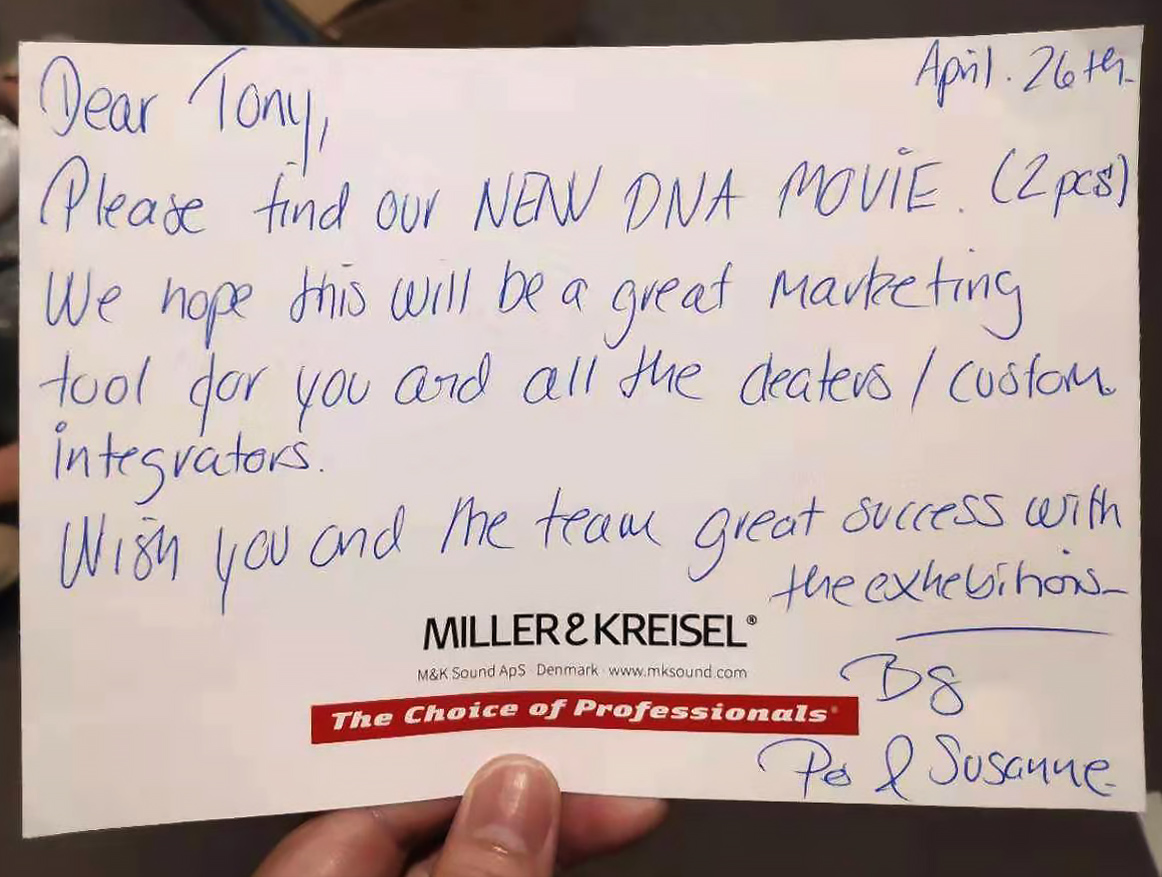 April. 26th.
Dear Tony,
Please find our NEW DNA MOVIE. (2pcs)
We hope this will be a great marketing
tool for you and all the dealers / custom
integrators.
Wish you and the team great success with
the exhebitions
MILLER & KREISEL®
M&K Sound ApS Denmark www.mksound.com
The Choice of Professionals®
& Susanne